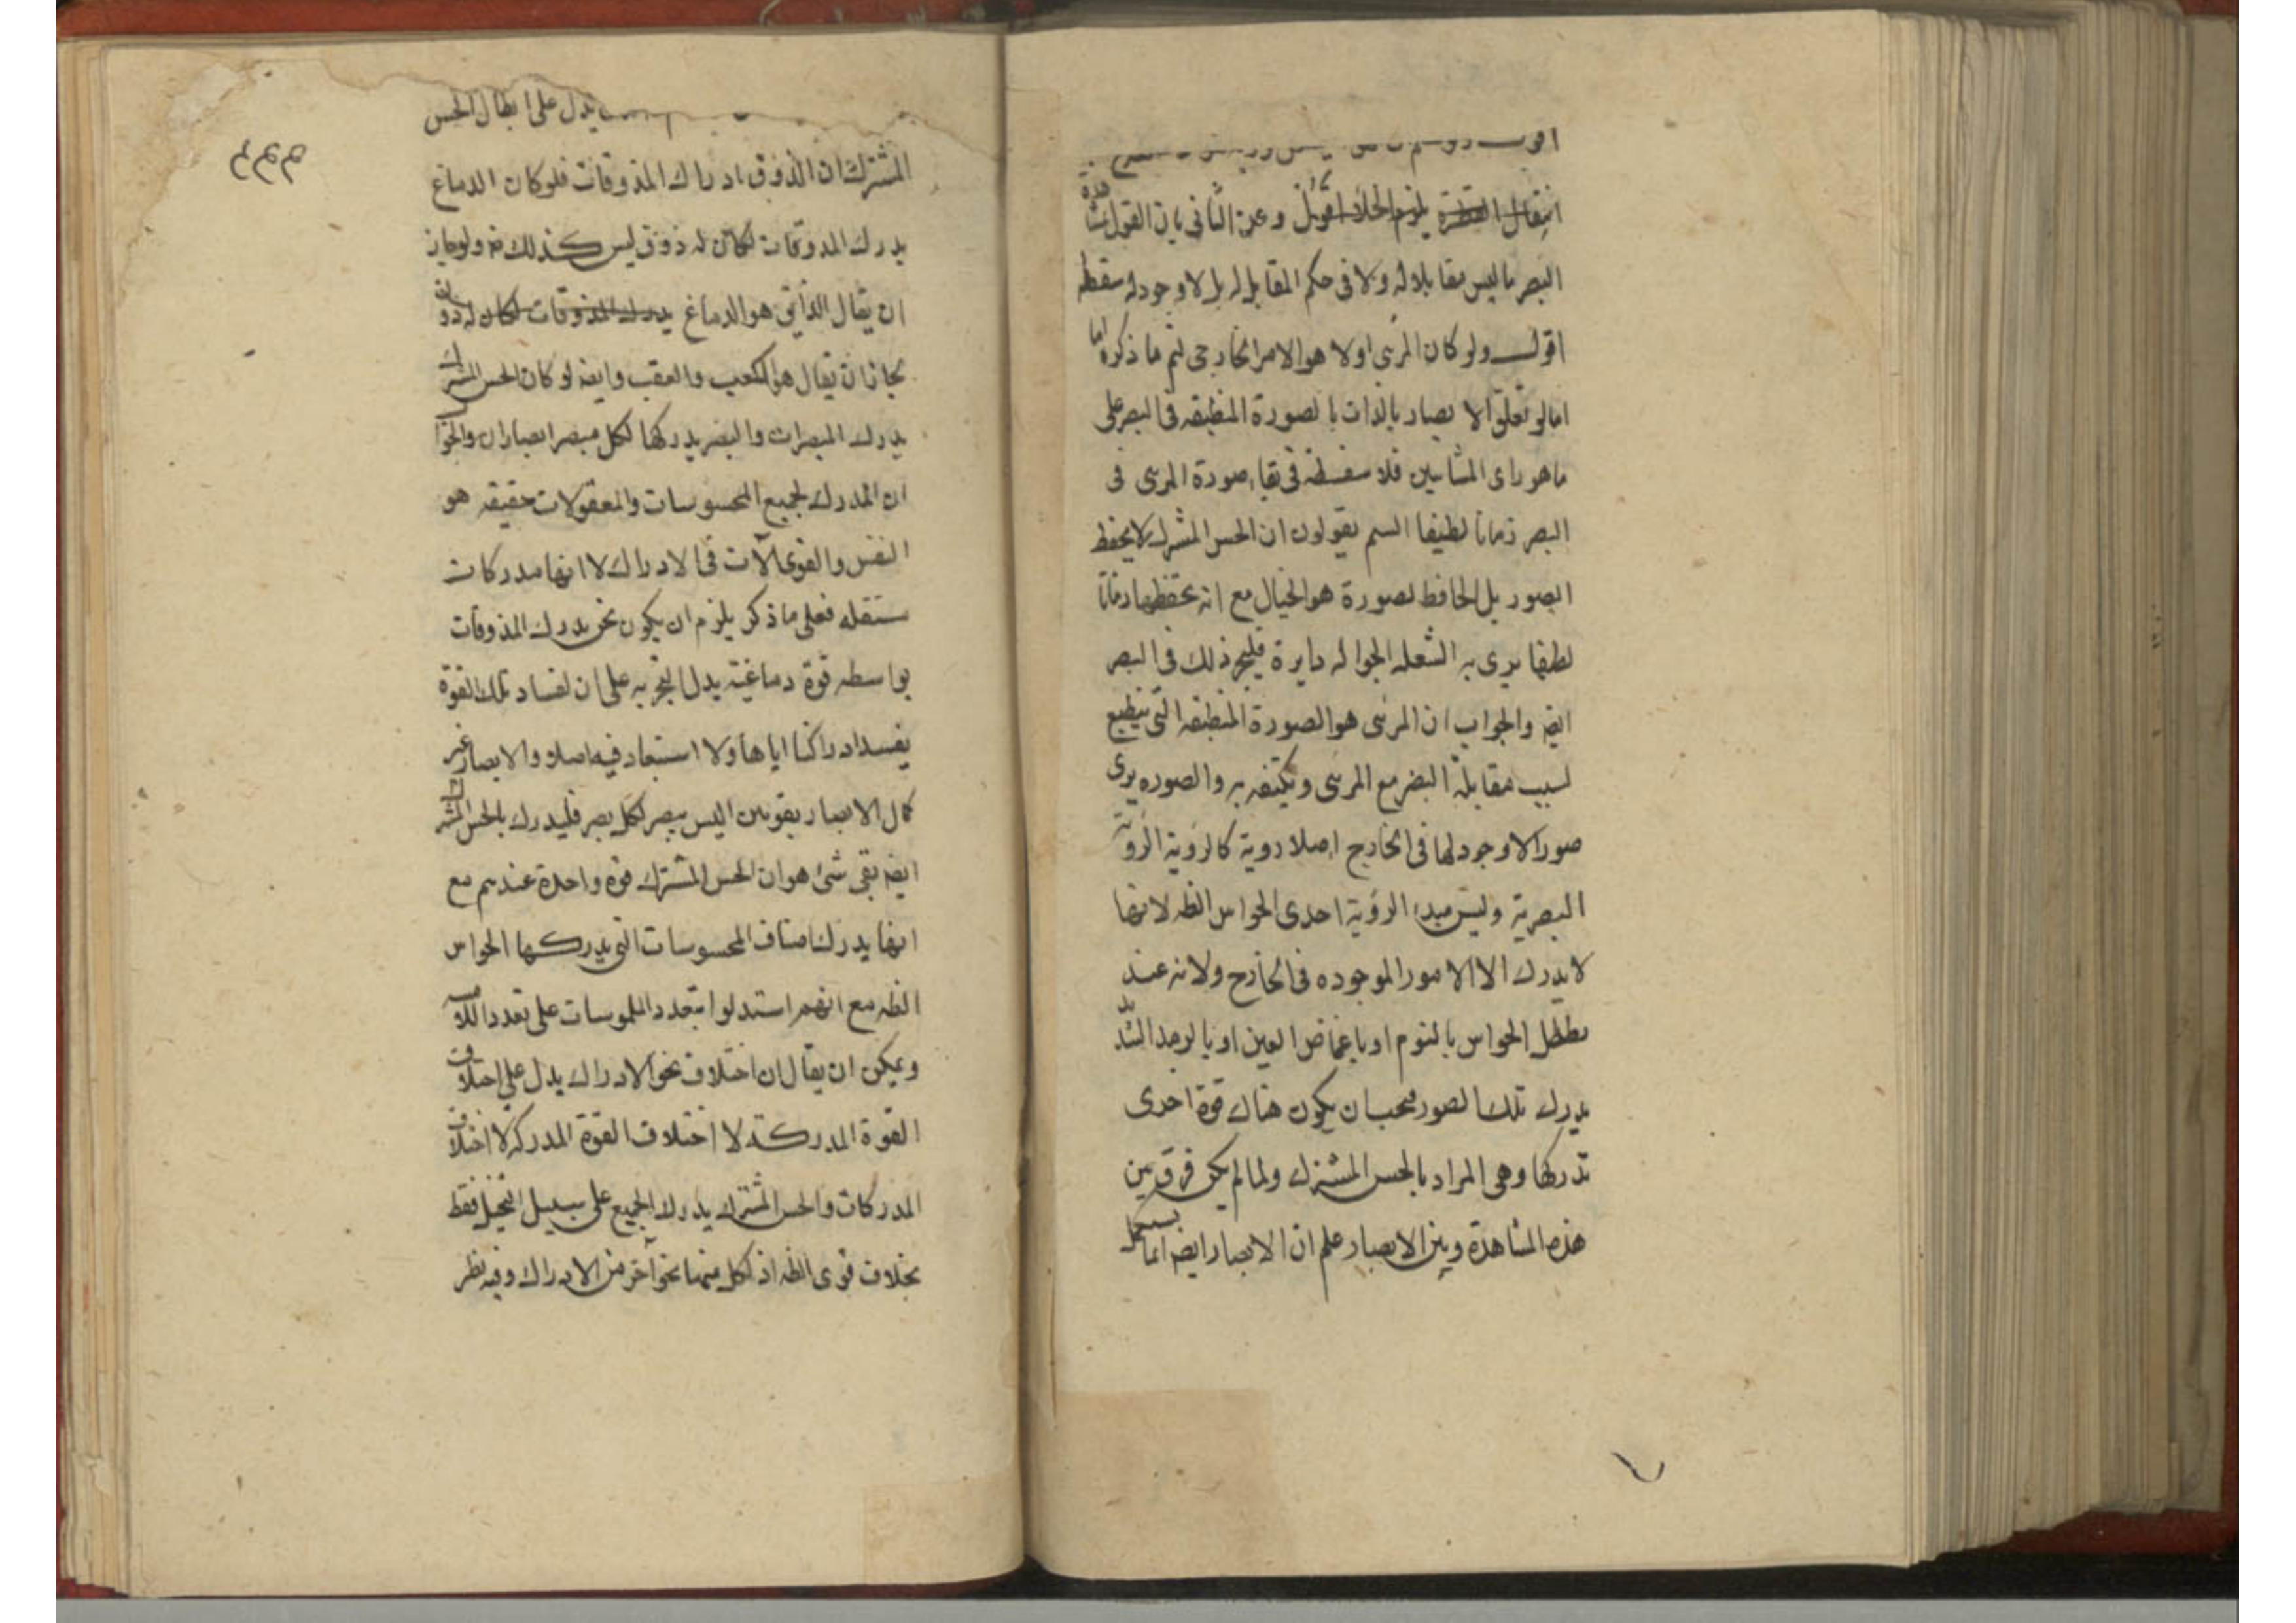 انتقال القطرة يلزم الخلاء اقول وعن الثانى بان القول بمشاهدة
البصر ما ليس مقابلا له ولا فى حكم المقابل له بل لا وجود له سفسطه
اقول ولو كان المرئى اولا هو الامر الخارجى لتم ما ذكره اما
اما لو تعلق الابصار بالذات بالصورة المنطبقه فى البصر على
ما هو راى المشايين فلا سفسطه فى بقاء صورة المرئى فى
البصر زمانا لطيفا السم يقولون ان الحس المشترك لا يحفظ
الصور بل الحافظ لصورة هو الخيال مع انه يحفظها زمانا
لطيفا يرى به الشعله الجواله دايرة فليجز ذلك فى البصر
ايضه والجواب ان المرئى هو الصورة المنطبقه التى ينطبع
لسبب مقابلة البصر مع المرئى ويكتفه به والصوره يرى
صورا لا وجود لها فى الخارج اصلا روية كالروية الروية
البصرية وليس مبداء الروية احدى الحواس الظه لانها
لا يدرك الا الامور الموجوده فى الخارج ولانه عند
تعطل الحواس بالنوم او باغماض العين او بالوجد الشديد
يدرك تلك الصور فيجب ان يكون هناك قوة اخرى
تدركها وهى المراد بالحس المشترك ولما لم يكن فرق بين
هذه المشاهدة وبين الابصار علم ان الابصار ايضه انما
٢٣٣
يدل على ابطال الحس
المشترك ان الذوق ادراك المذوقات فلو كان الدماغ
يدرك المذوقات لكان له ذوق ليس كذلك ثم ولو جاز
ان يقال الذائق هو الدماغ يدرك المذوقات لكان له ذوق
لجاز ان يقال هو الكعب والعقب وايضه لو كان الحس المشترك
يدرك المبصرات والبصر يدركها لكل مبصر ابصاران والجواب
ان المدرك لجميع المحسوسات والمعقولات حقيقه هو
النفس والقوى آلات فى الادراك لا انها مدركات
مستقله فعلى ما ذكر يلزم ان يكون نحن يدرك المذوقات
بواسطه قوة دماغية يدل التجربه على ان لفساد تلك القوة
يفسد ادراكنا اياها ولا استبعاد فيه اصلا والابصار غير
كمال الابصار بقوتين اليس يبصر لكل بصر فليدرك بالحس المشترك
ايضه بقى شئ هو ان الحس المشترك قوة واحدة عندهم مع
انها يدرك اصناف المحسوسات التى يدركها الحواس
الظه مع انهم استدلوا بتعدد الملموسات على تعدد اللامسه
ويمكن ان يقال ان اختلاف نحو الادراك يدل على اختلاف
القوة المدركة لا اختلاف القوة المدركه لا اختلاف
المدركات والحس المشترك يدرك الجميع على سبيل التخيل فقط
بخلاف قوى الظه اذ لكل منها نحو آخر من الادراك وفيه نظر